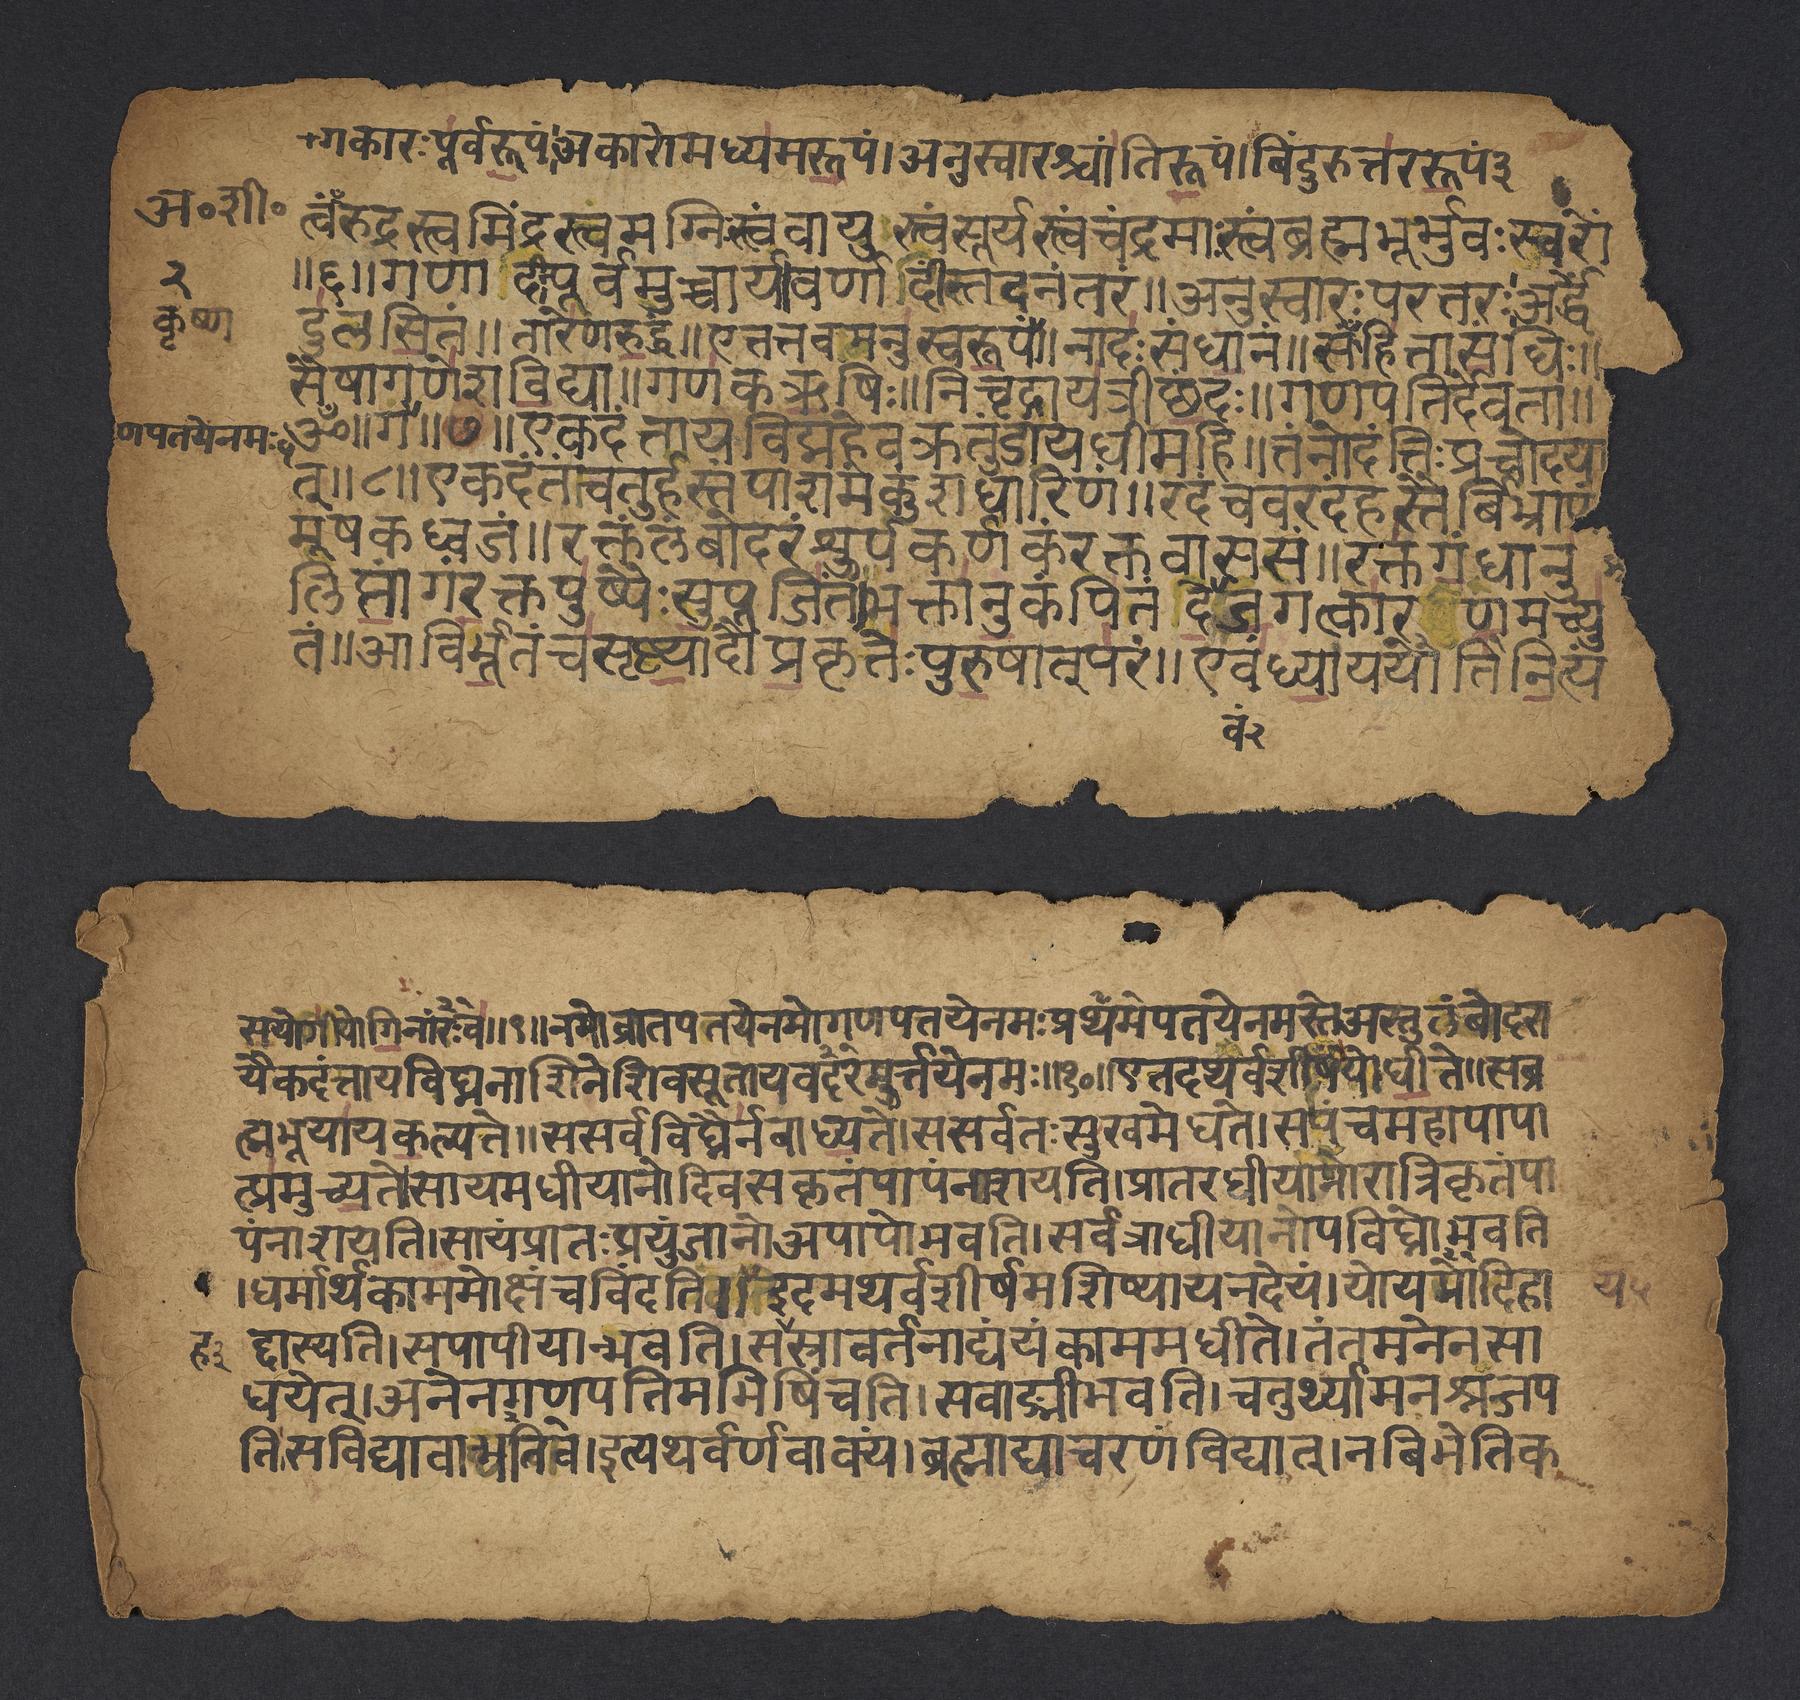 +गकारःपूर्वरूपं।अकारोमध्यमरूपं।अनुस्वारश्चांतिरूपं।बिंदुरुत्तररूपं३
अ॰शी॰
त्वंरुद्रस्त्वमिंद्रस्त्वमग्निस्त्वंवायु स्त्वंसूर्यस्त्वंचंद्रमास्त्वंब्रह्मभूर्भुवःस्वरों
२
॥६॥गणादीपूर्वमुच्चार्यवर्णादींस्तदनंतरं॥अनुस्वारःपरतरःअर्द्धें
कृष्ण
दुलसितं॥तारेणरुद्धं॥एतत्तवमनुस्वरूपं॥नादःसंधानं॥सँहितासंधिः॥
सैषागणेशविद्या॥गणकऋषिः॥निचृद्गायत्रीछंदः॥गणपतिर्देवता॥
णपतयेनमः
ॐ॥गं॥७॥एकदंतायविद्महेवक्रतुंडायधीमहि॥तंनोदंतिःप्रचोदया
त्॥८॥एकदंतंचतुर्हस्तंपाशमंकुशधारिणं॥रदंचवरदंहस्तैर्बिभ्राण
मूषकध्वजं॥रक्तंलंबोदरंशुर्पकर्णकंरक्तवाससं॥रक्तगंधानु
लिप्तांगंरक्तपुष्पैःसुपूजितं।भक्तानुकंपिनंदेवंजगत्कारणमच्यु
तं॥आविर्भूतंचसृष्ट्यादौप्रकृतेःपुरुषात्परं॥एवंध्याययोतिनित्यं
वं२
सयोगीयोगिनांवरः॥९॥नमोव्रातपतयेनमोगणपतयेनमःप्रथमेपतयेनमस्तेअस्तुलंबोदरा
यैकदंतायविघ्ननाशिनेशिवसूतायवरदमुर्त्तयेनमः॥१०॥एतदथर्वशीर्षंयोधीते॥सब्र
ह्मभूयायकल्पते॥ससर्वविघ्नैर्नबाध्यते।ससर्वतःसुखमेधते।सपंचमहापापा
त्प्रमुच्यते।सायमधीयानोदिवसकृतंपापंनाशयति।प्रातरधीयानोरात्रिकृतंपा
पंनाशयति।सायंप्रातःप्रयुंजानोअपापोभवति।सर्वत्राधीयानोपविघ्नोभवति
।धर्मार्थकाममोक्षंचविंदति॥इदमथर्वशीर्षमशिष्यायनदेयं।योयमोदिहा
य५
ह३
द्दास्यति।सपापीयान्भवति।सँस्रावर्तनाद्यंयंकाममधीते।तंतमनेनसा
धयेत्।अनेनगणपतिमभिषिंचति।सवाङ्मीभवति।चतुर्थ्यामनश्नन्जप
तिसविद्यावान्भवति।इत्यथर्वर्णवाक्यं।ब्रह्माद्याचरणंविद्यात्।नबिभेतिक